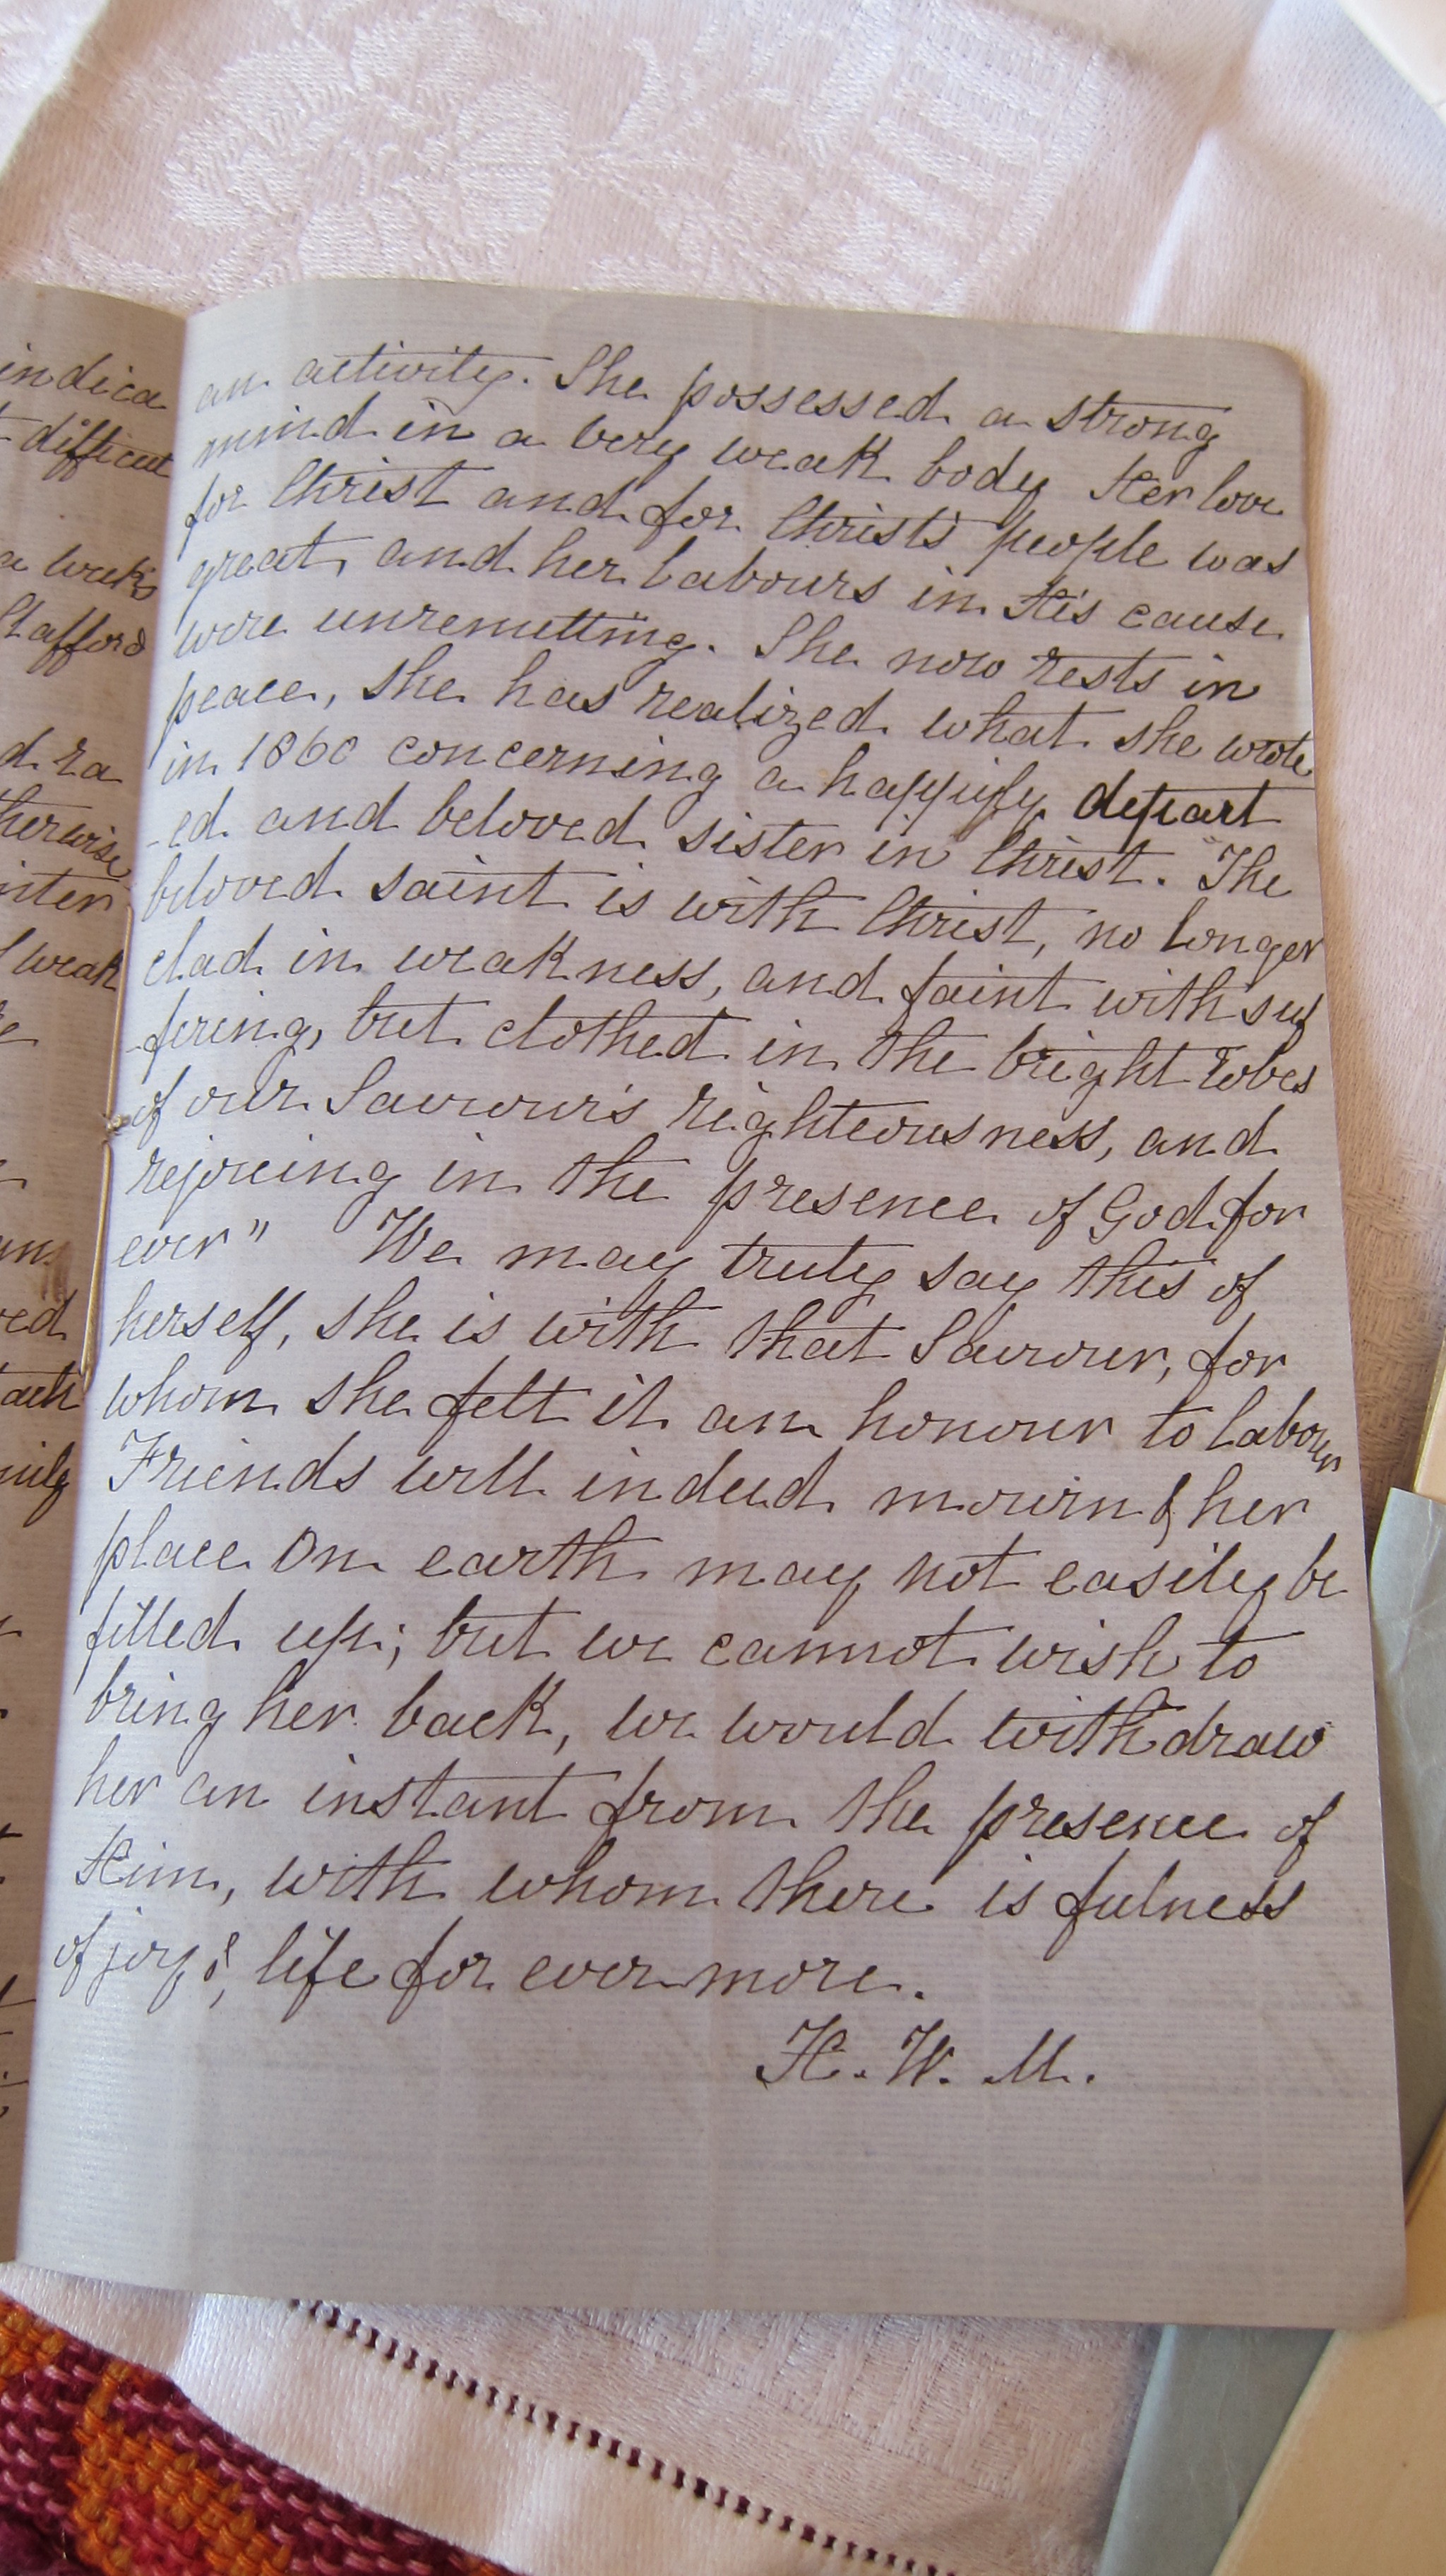 indica
difficult
a week's
Stafford
d ra
therwise
inter
weak
ved
tack
mily
an activity. She possessed a strong
mind in a very weak body Her love
for Christ and for Christ's people was
great, and her labours in His cause
were unremitting. She now rests in
peace, she has realized what she wrote
in 1860 concerning a happily depart
-ed and beloved sister in Christ. "The
beloved saint is with Christ, no longer
clad in weakness, and faint with suf
-fering, but clothed in the bright robes
of our Saviour's righteousness, and
rejoicing in the presence of God for
ever" We may truly say this of
herself, she is with that Saviour, for
whom she felt it an honour to labour
Friends will indeed mourn & her
place on earth may not easily be
filled up; but we cannot wish to
bring her back, we would withdraw
her an instant from the presence of
Him, with whom there is fulness
of joy & life for evermore.
H. W. M.